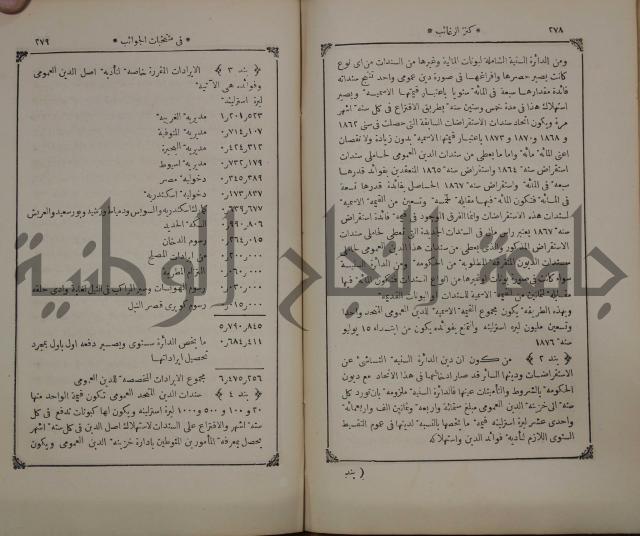 ٢٧٨
* كنز الرغائب *
ومن الدائرة السنية الشاملة لبونات المالية وغيرها من السندات من اى نوع
كانت يصير حصرها وافراغها فى صورة دين عمومى واحد تنتج سنداته
فائدة مقدارها سبعة فى المائة سنويا باعتبار قيمتها الاسمية ويصير
استهلاك هذا فى مدة خمس وستين سنة بطريق الاقتراع فى كل ستة اشهر
مرة ويكون اتحاد سندات الاستقراضات السابقة التى حصلت فى سنى ١٨٦٢
و ١٨٦٨ و ١٨٧٠ و ١٨٧٣ باعتبار قيمتها الاسمية بدون زيادة ولا نقصان
اعنى المائة مائة واما ما يعطى من سندات الدين العمومى لحاملى سندات
استقراض سنة ١٨٦٤ واستقراض سنة ١٨٦٥ المنعقدين بفوائد قدرها
سبعة فى المائة واستقراض سنة ١٨٦٧ الحاصل بفائدة قدرها تسعة
فى المائة فتكون المائة فيها مقابلة خمسة وتسعين من القيمة الاسمية
لسندات هذه الاستقراضات وانما الفرق الموجود فى قيمة فائدة استقراض
سنة ١٨٦٧ يعتبر رأس مال فى السندات الجديدة التى تعطى لحاملى سندات
الاستقراض المذكور والذى يعطى من سندات هذا الدين العمومى لحاملى
سندات الديون المتفرقة المطلوبة من الحكومة ومن الدائرة السنية
سواء كانت فى صورة بونات او غيرها من انواع السندات فتكون المائة فيها
مقابلة لثمانين من القيمة الاسمية للسندات او البونات القديمة
وبهذه الطريقة يكون مجموع القيمة الاسمية للدين العمومى المتحد واحدا
وتسعين مليون ليره استرلينه والنفع بفوائده يكون من ابتداء ١٥ يوليو
سنة ١٨٧٦
﴿ بند ٢ ﴾ من كون ان دين الدائرة السنية الناشئ عن
الاستقراضات ودينها السائر قد صار ادخالهما فى هذا الاتحاد مع ديون
الحكومة بالشروط والتأمينات عينها فالدائرة السنية ملزومة بان تورد كل
سنة الى خزينة الدين العمومى مبلغ ستمائة واربعة وثمانين الف واربعمائة
واحدى عشر ليرة استرلينه قيمة ما يخصها بالنسبة لدينها فى عموم التقسيط
السنوى اللازم لتأدية فوائد الدين واستهلاكه
( بند
* فى منتخبات الجوائب *
٢٧٩
﴿ بند ٣ ﴾ الايرادات المقررة خاصة لتأدية اصل الدين العمومى
وفوائده هى الآتية
ليرة استرلينه
١٫٢٠١٫٥٢٣ مديرية الغربية
٠٫٧١٤٫١٠٧ مديرية المنوفية
٠٫٤٢٤٫٣١٢ مديرية البحيرة
٠٫٧٣٢٫١٧٩ مديرية اسيوط
٠٫٣٤٥٫٣٨٩ دخولية مصر
٠٫١٧٣٫٨٣٧ دخولية اسكندرية
٠٫٦٣٩٫٦٧٧ كمارك اسكندرية والسويس ودمياط ورشيد وبورسعيد والعريش
٠٫٩٩٠٫٨٠٦ السكة الحديد
٠٫٢٦٤٫٠١٥ رسوم الدخان
٠٫٢٠٠٫٠٠٠ من ايرادات الملح
٠٫٠٦٠٫٠٠٠ التزام المطرية
٠٫٠٣٠٫٠٠٠ رسوم الهويسات وسير المراكب فى النيل لغاية وادى حلفه
٠٫٠١٥٫٠٠٠ رسوم كوبرى قصر النيل
٥٫٧٩٠٫٨٤٥
٠٫٦٨٤٫٤١١ ما يخص الدائرة سنوى ويصير دفعه اول باول بمجرد
تحصيل ايراداتها
٦٫٤٧٥٫٢٥٦ مجموع الايرادات المتخصصة للدين العمومى
﴿ بند ٤ ﴾ سندات الدين المتحد العمومى تكون قيمة الواحد منها
٢٠ و ١٠٠ و ٥٠٠ و ١٠٠٠ ليرة استرلينه ويكون لها كبونات تدفع فى كل
ستة اشهر والاقتراع على السندات لاستهلاك اصل الدين فى كل ستة اشهر
يحصل بمعرفة المأمورين المنوطين بادارة خزينة الدين العمومى ويكون
جامعة النجاح الوطنية